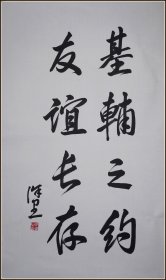 基輔之约
友谊长存